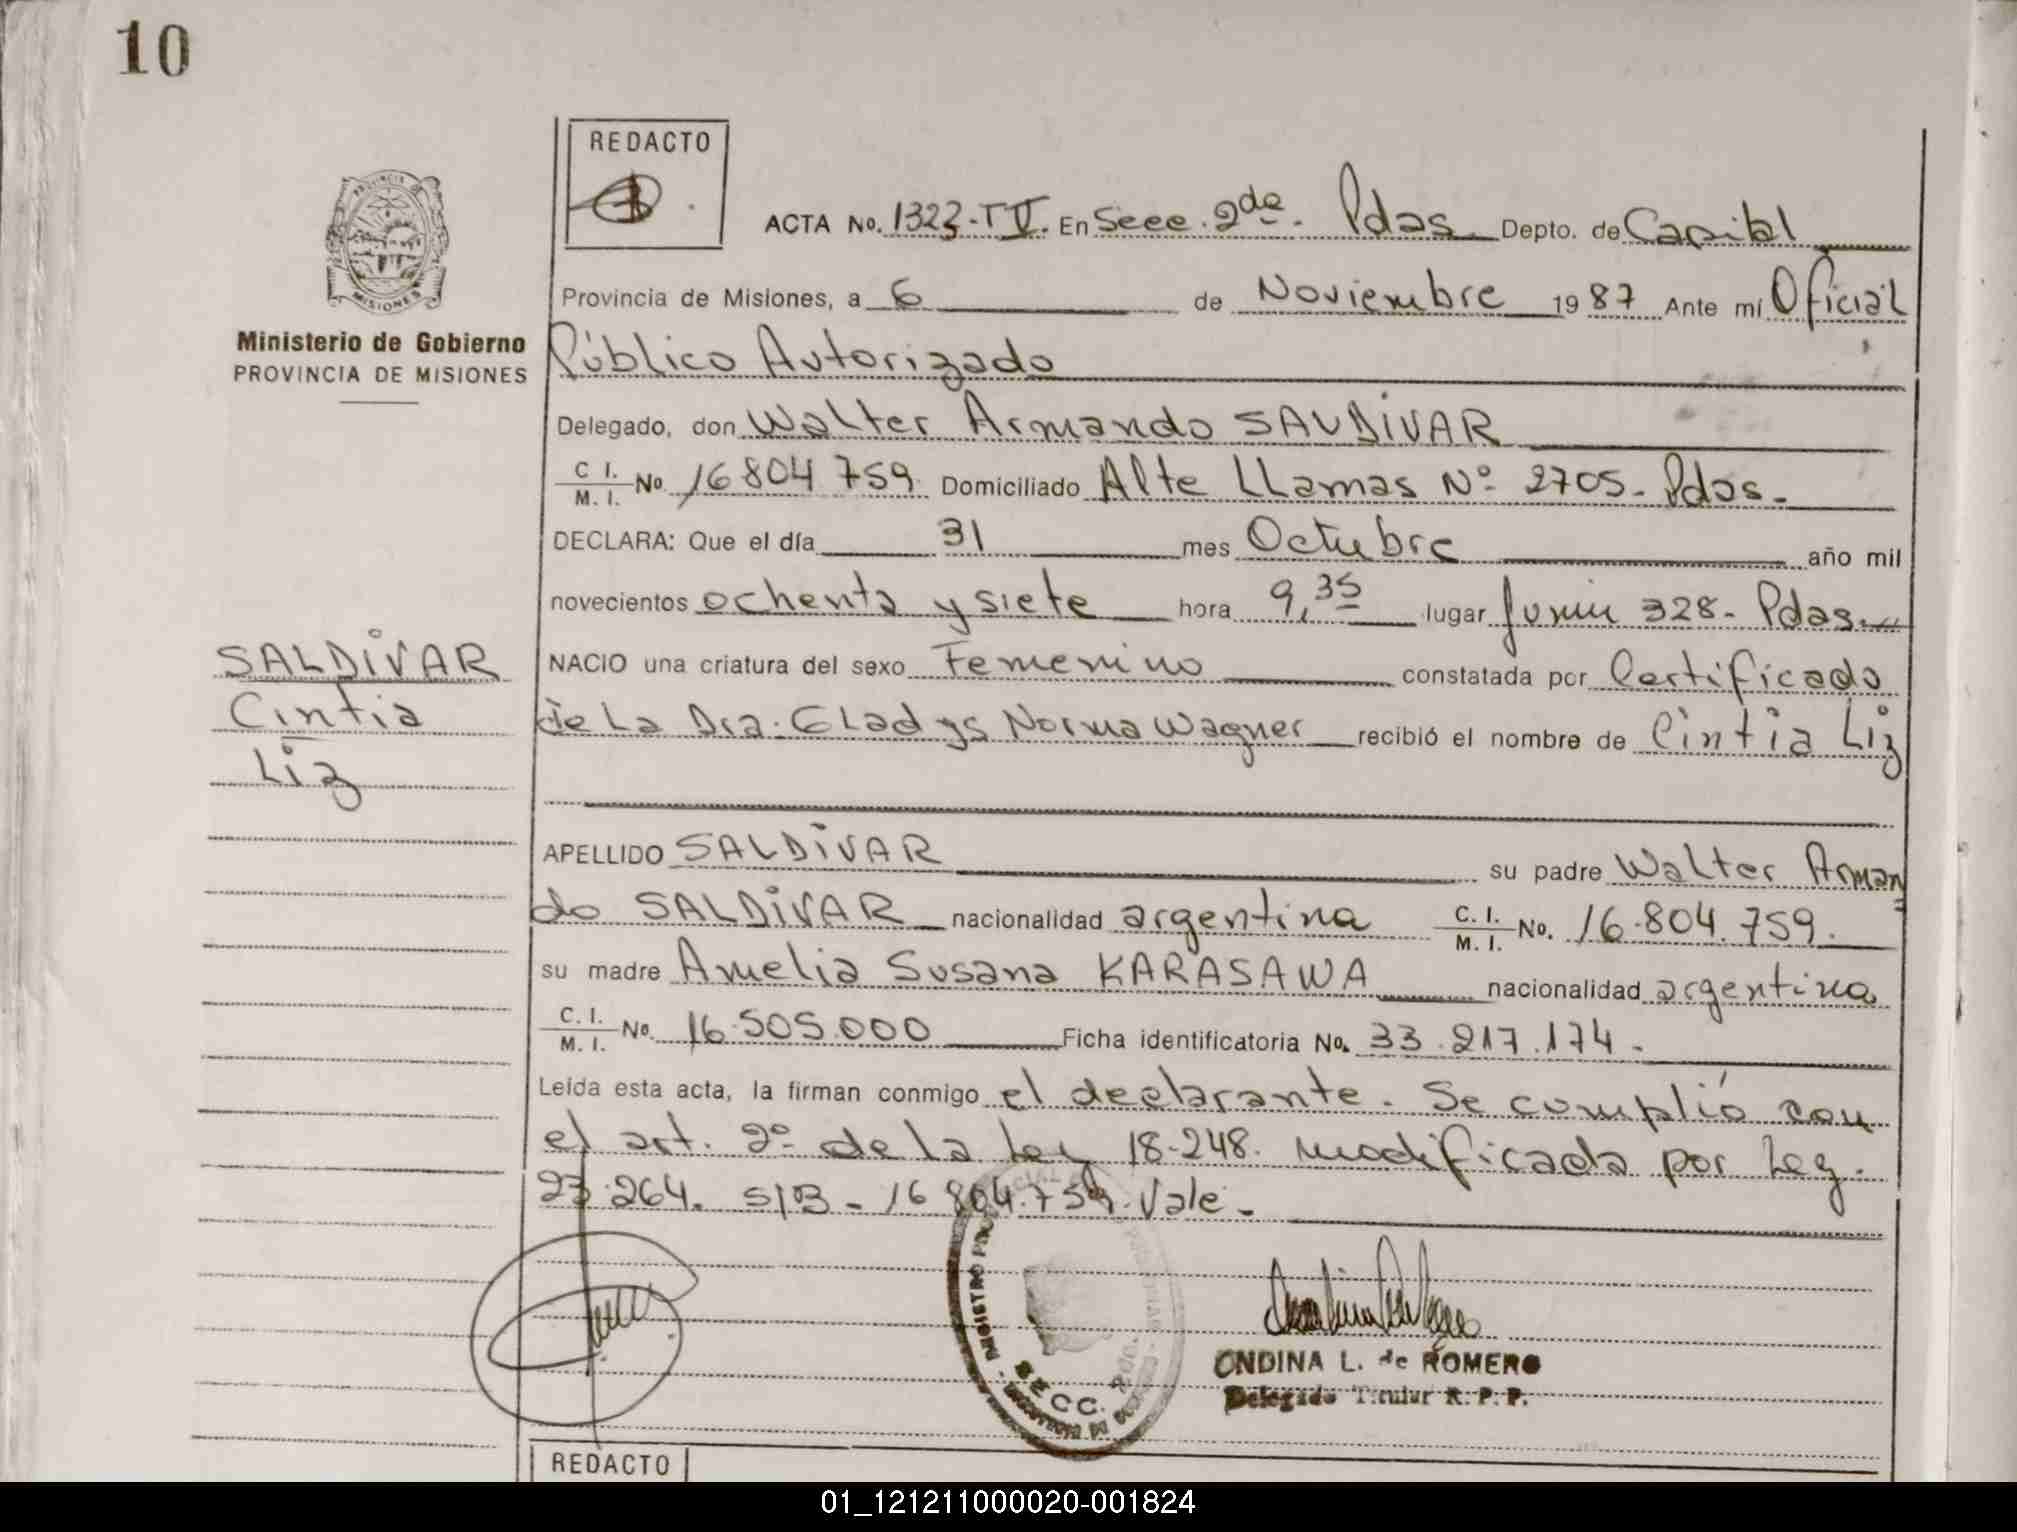 10
REDACTO
ACTA No. 1323-T V. En Secc. 2da. Pdas. Depto. de Capital
PROVINCIA DE
MISIONES
Provincia de Misiones, a 6 de Noviembre 1987 Ante mí Oficial
Ministerio de Gobierno
PROVINCIA DE MISIONES
Público Autorizado
Delegado, don Walter Armando SALDIVAR
C I. / M. I. No. 16804759 Domiciliado Alte LLamas Nº 2705- Pdas.-
DECLARA: Que el día 31 mes Octubre año mil
novecientos ochenta y siete hora 9,35 lugar Junin 328- Pdas.
SALDIVAR
Cintia
Liz
NACIO una criatura del sexo Femenino constatada por Certificado
de La Dra. GLadys Norma Wagner recibió el nombre de Cintia Liz
APELLIDO SALDIVAR su padre Walter Arman
do SALDIVAR nacionalidad argentina C. I. / M. I. No. 16.804.759.
su madre Amelia Susana KARASAWA nacionalidad argentina
C. I. / M. I. No. 16.505.000 Ficha identificatoria No. 33.217.174.-
Leída esta acta, la firman conmigo el declarante. Se cumplió con
el art. 2º de la Ley 18.248. modificada por Ley.
23.264. S/B - 16 804.759. Vale.-
SECC. 2da.
ONDINA L. de ROMERO
Delegada Titular R. P. P.
REDACTO
01_121211000020-001824